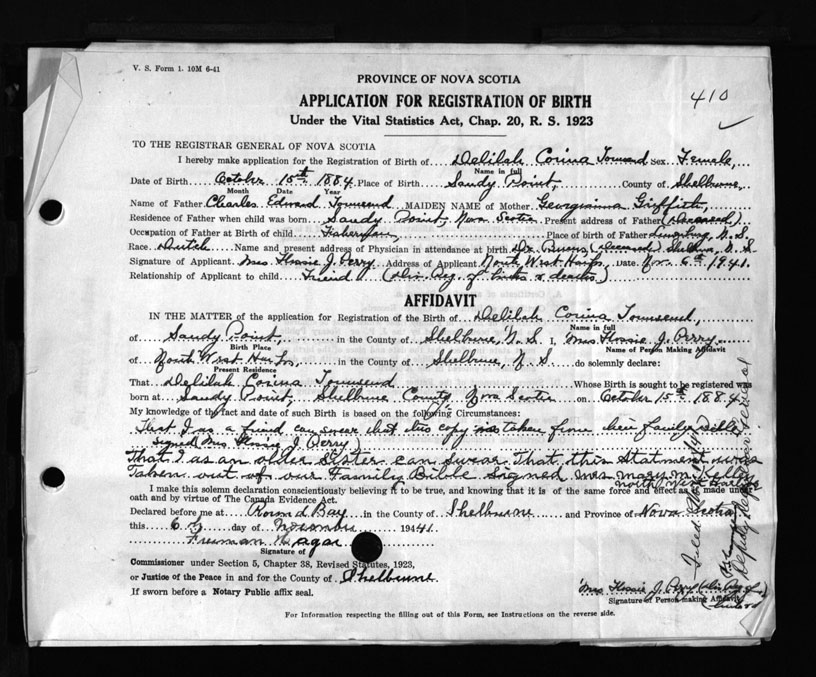 V. S. Form 1. 10M 6-41
PROVINCE OF NOVA SCOTIA
410
APPLICATION FOR REGISTRATION OF BIRTH
Under the Vital Statistics Act, Chap. 20, R. S. 1923
TO THE REGISTRAR GENERAL OF NOVA SCOTIA
I hereby make application for the Registration of Birth of Delilah Corina Townsend Sex Female
Name in full
Date of Birth October 15th 1884 Place of Birth Sandy Point, County of Shelburne
Month Date Year
Name of Father Charles Edward Townsend MAIDEN NAME of Mother Georgianna Griffith
Residence of Father when child was born Sandy Point, Nova Scotia Present address of Father (Deceased)
Occupation of Father at Birth of child Fisherman Place of birth of Father N. S.
Race Dutch Name and present address of Physician in attendance at birth Dr. Burns (deceased) Shelburne N. S.
Signature of Applicant Mrs Flossie J. Perry Address of Applicant North West Harbor Date Nov. 6th 1941.
Relationship of Applicant to child Friend (Div. Reg. of births & deaths)
AFFIDAVIT
IN THE MATTER of the application for Registration of the Birth of Delilah Corina Townsend,
Name in full
of Sandy Point, in the County of Shelburne, N. S. I, Mrs Flossie J. Perry
Birth Place Name of Person Making Affidavit
of North West Harbor, in the County of Shelburne, N. S. do solemnly declare:
Present Residence
That Delilah Corina Townsend Whose Birth is sought to be registered was
born at Sandy Point, Shelburne County, Nova Scotia on October 15th 1884
My knowledge of the fact and date of such Birth is based on the following Circumstances:
That I as a friend can swear that this copy was taken from her family Bible
signed Mrs Flossie J. Perry)
That I as an older sister can swear that this Statment were
Taken out of our Family Bible Signed Mrs Mary M. Kelley
North West Harbor
I make this solemn declaration conscientiously believing it to be true, and knowing that it is of the same force and effect as if made under
oath and by virtue of The Canada Evidence Act.
Declared before me at Round Bay in the County of Shelburne and Province of Nova Scotia
this 6th day of November 194 41
Freeman Hagar
Signature of
Commissioner under Section 5, Chapter 38, Revised Statutes, 1923,
or Justice of the Peace in and for the County of Shelburne
If sworn before a Notary Public affix seal.
Mrs Flossie J. Perry (Div Reg of
Signature of Person making Affidavit
For Information respecting the filling out of this Form, see Instructions on the reverse side.
Filed
Deputy Registrar General